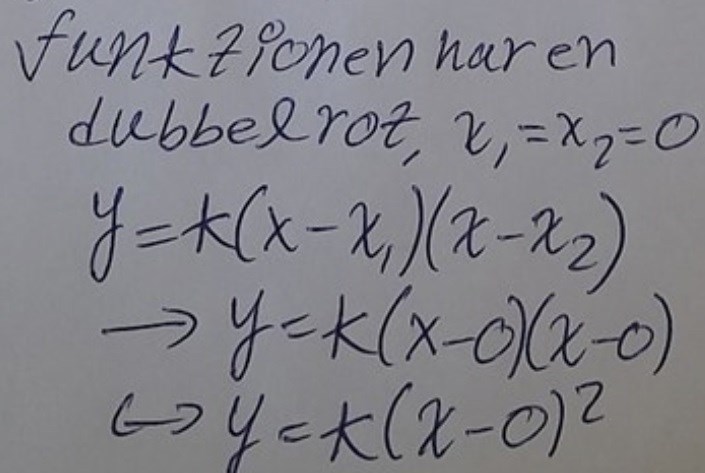 funktionen har en
dubbelrot, x₁=x₂=0
y=k(x-x₁)(x-x₂)
→ y=k(x-0)(x-0)
↔ y=k(x-0)²